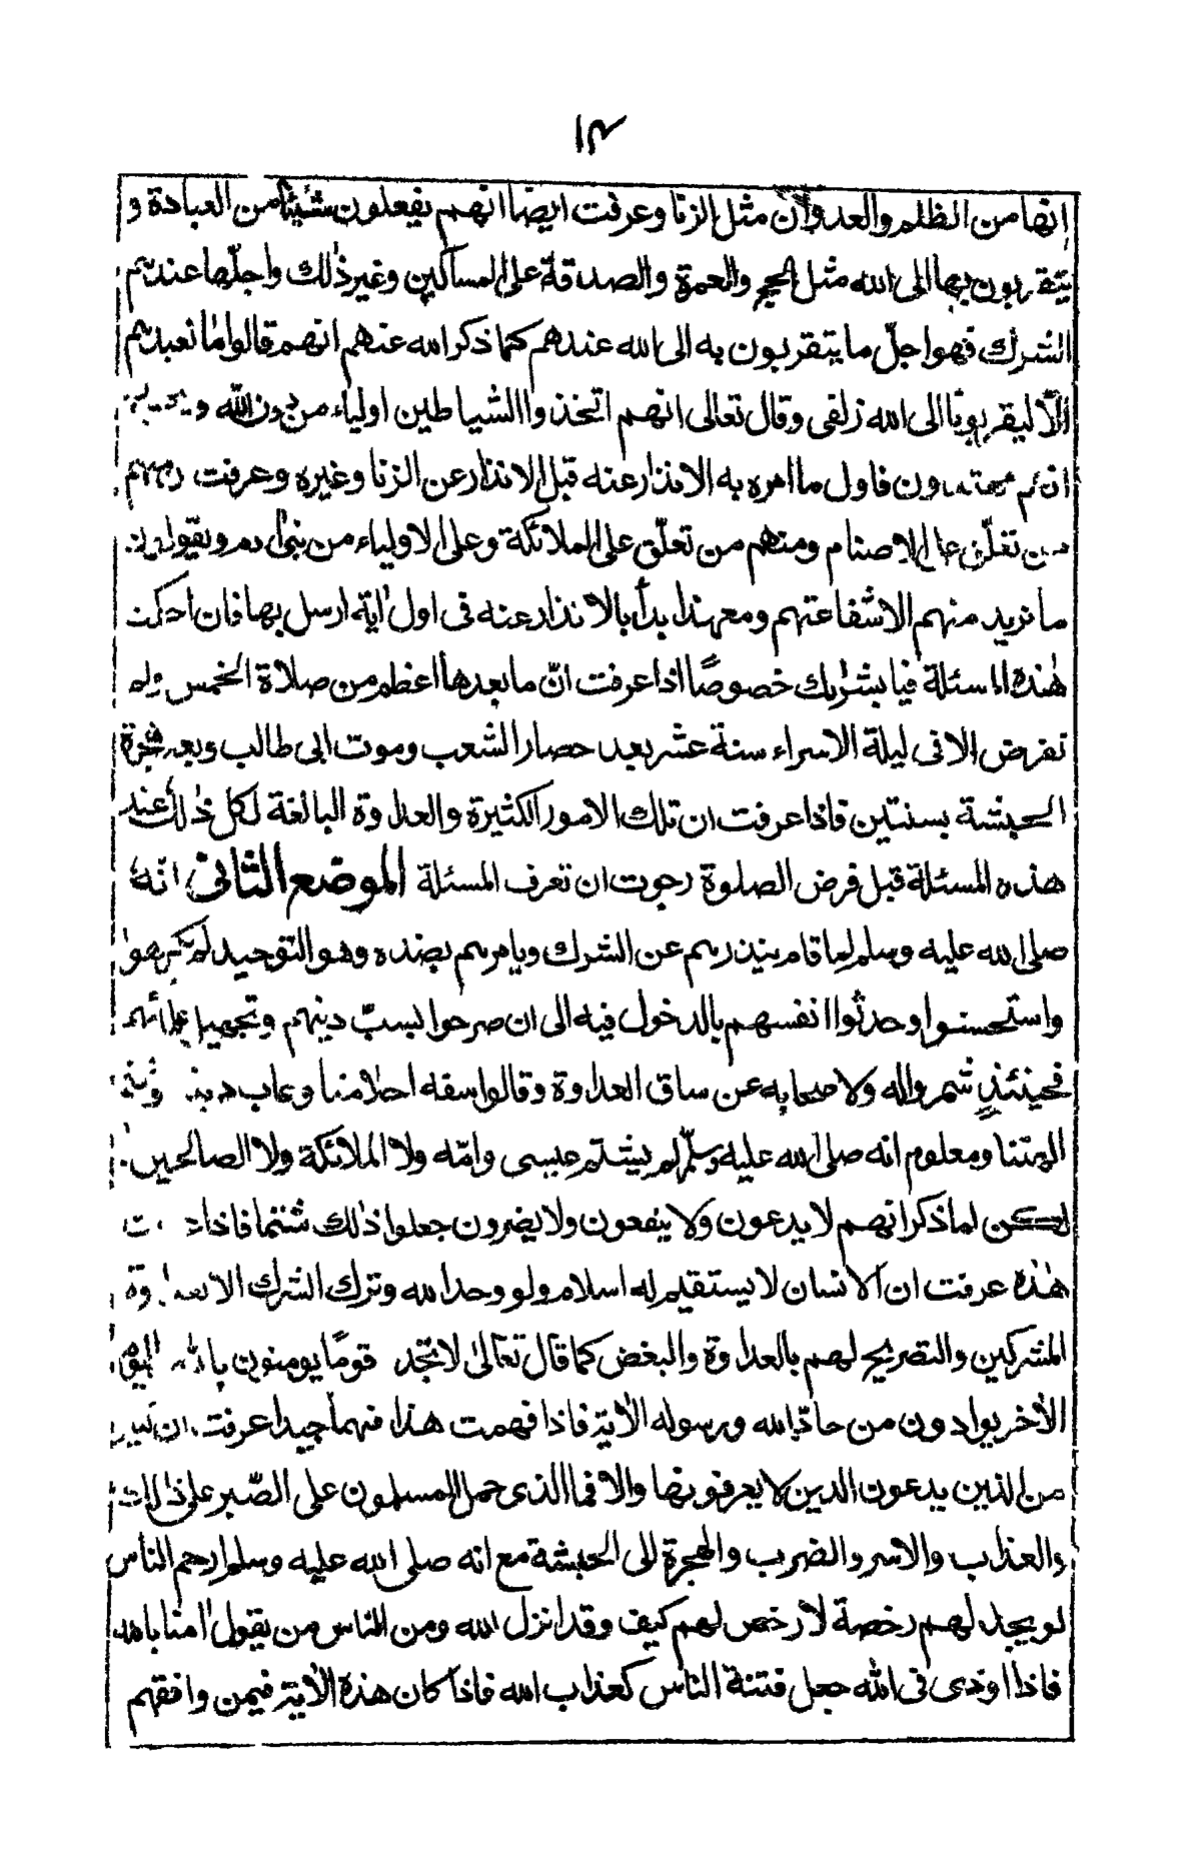 ١٣
انها من الظلم والعدوان مثل الزنا وعرفت ايضا انهم يفعلون شيئا من العبادة و
يتقربون بها الى الله مثل الحج والعمرة والصدقة على المساكين وغير ذلك واجلها عندهم
الشرك فهو اجلّ ما يتقربون به الى الله عندهم كما ذكر الله عنهم انهم قالوا ما نعبدهم
الّا ليقربونا الى الله زلفى وقال تعالى انهم اتخذوا الشياطين اولياء من دون الله
انهم مهتدون فاول ما امره به الانذار عنه قبل الانذار عن الزنا وغيره وعرفت
من تعلّق على الاصنام ومنهم من تعلّق على الملائكة وعلى الاولياء من بنى ادم ويقولون
ما نريد منهم الا شفاعتهم ومع هذا بدأ بالانذار عنه فى اول اية ارسل بها فان احكمت
هذه المسئلة فيا بشراك خصوصًا اذا عرفت انّ ما بعدها اعظم من صلاة الخمس ولم
تفرض الا فى ليلة الاسراء سنة عشر بعد حصار الشعب وموت ابى طالب وبعد هجرة
الحبشة بسنتين فاذا عرفت ان تلك الامور الكثيرة والعداوة البالغة لكل ذلك عند
هذه المسئلة قبل فرض الصلوة رجوت ان تعرف المسئلة الموضع الثانى انّه
صلى الله عليه وسلم لما قام ينذرهم عن الشرك ويامرهم بضده وهو التوحيد لم يكرهوا
واستحسنوا وحدثوا انفسهم بالدخول فيه الى ان صرح بسبّ دينهم وتجهيل علمائهم
فحينئذٍ شمروا له ولاصحابه عن ساق العداوة وقالوا سفه احلامنا وعاب ديننا وشتم
الهتنا ومعلوم انه صلى الله عليه وسلّم لم يشتم عيسى وامّه ولا الملائكة ولا الصالحين
لكن لما ذكر انهم لا يدعون ولا ينفعون ولا يضرون جعلوا ذلك شتما فاذا
هذه عرفت ان الانسان لا يستقيم له اسلام ولو وحد الله وترك الشرك الا بعداوة
المشركين والتصريح لهم بالعداوة والبغض كما قال تعالى لا تجد قومًا يومنون بالله اليوم
الأخر يوادون من حادّ الله ورسوله الأية فاذا فهمت هذا فهما جيدا عرفت ان كثير
من الذين يدعون الدين لا يعرفونها والا فما الذى حمل المسلمون على الصّبر على ذلك
والعذاب والاسر والضرب والهجرة الى الحبشة مع انه صلى الله عليه وسلم ارحم الناس
لو يجد لهم رخصة لارخص لهم كيف وقد انزل الله ومن الناس من يقول امنا بالله
فاذا اوذى فى الله جعل فتنة الناس كعذاب الله فاذا كان هذه الأية فيمن وافقهم